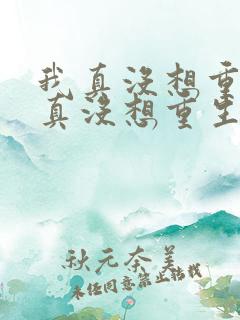 我真没想重
真没想重生
秋元奈美
未经同意禁止转载